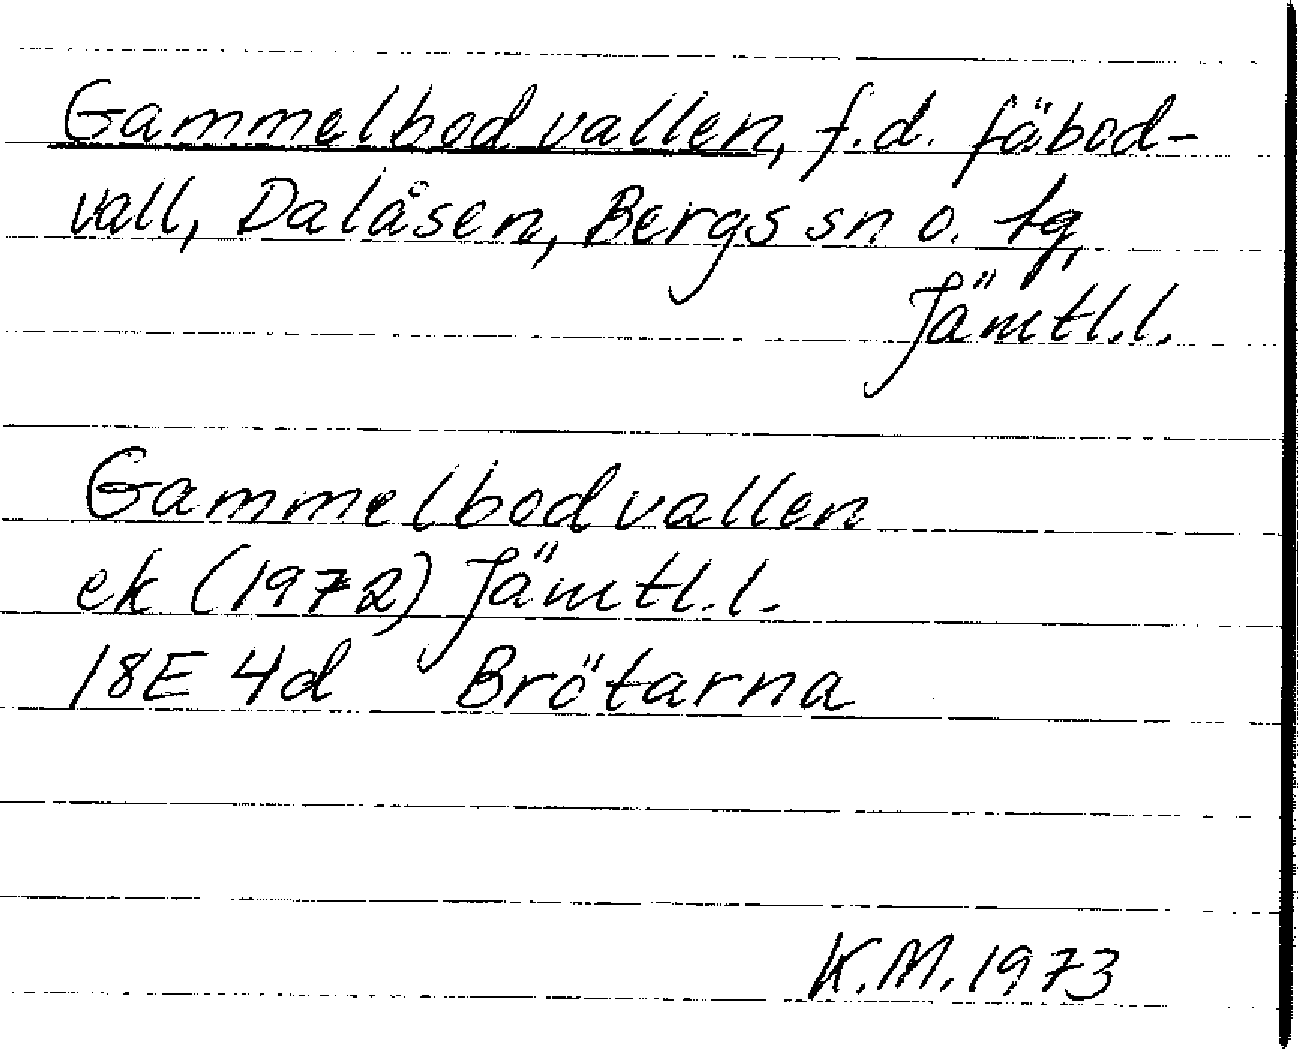 Gammelbodvallen, f.d. fäbod-
vall, Dalåsen, Bergs sn o. tg,
Jämtl.l.
Gammelbodvallen
ek (1972) Jämtl.l.
18E 4d Brötarna
K.M. 1973